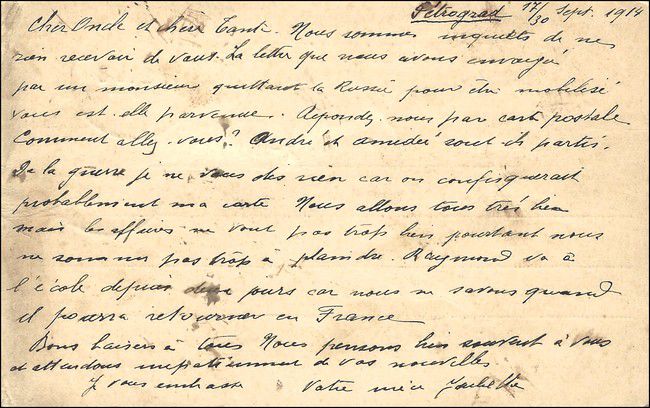 Petrograd 17/30 Sept. 1914
Cher Oncle et chère Tante. Nous sommes inquiets de ne
rien recevoir de vous. La lettre que nous avons envoyée
par un monsieur quittant la Russie pour être mobilisé
vous est elle parvenue. Répondez nous par carte postale
Comment allez-vous? André et Amédée sont ils partis.
De la guerre je ne vous dis rien car on confisquerait
probablement ma carte Nous allons tous très bien
mais les affaires ne vont pas trop bien pourtant nous
ne sommes pas trop à plaindre. Raymond va à
l'école depuis deux jours car nous ne savons quand
il pourra retourner en France
Bons baisers à tous Nous pensons bien souvent à vous
et attendons impatiemment de vos nouvelles
Je vous embrasse Votre nièce